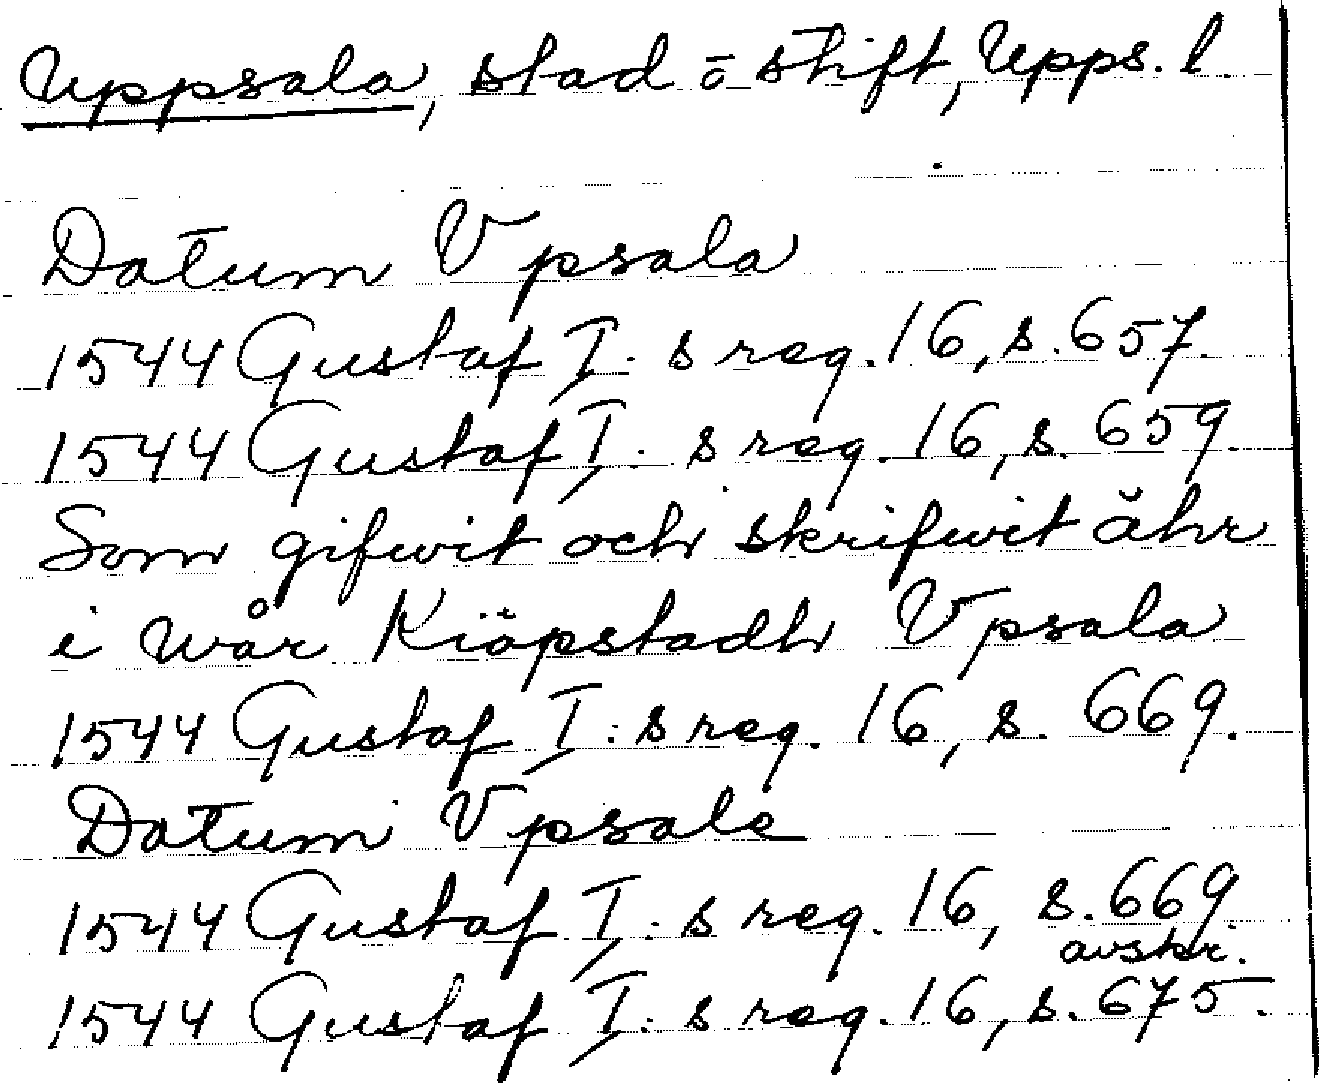 Uppsala, stad o stift, Upps. l.
Datum Vpsala
1544 Gustaf I:s reg. 16, s. 657.
1544 Gustaf I:s reg. 16, s. 659.
Som gifwit och skrifwit ähr
i wår Kiöpstadh Vpsala
1544 Gustaf I:s reg. 16, s. 669.
Datum Vpsale
1544 Gustaf I:s reg. 16, s. 669
avskr.
1544 Gustaf I:s reg. 16, s. 675.